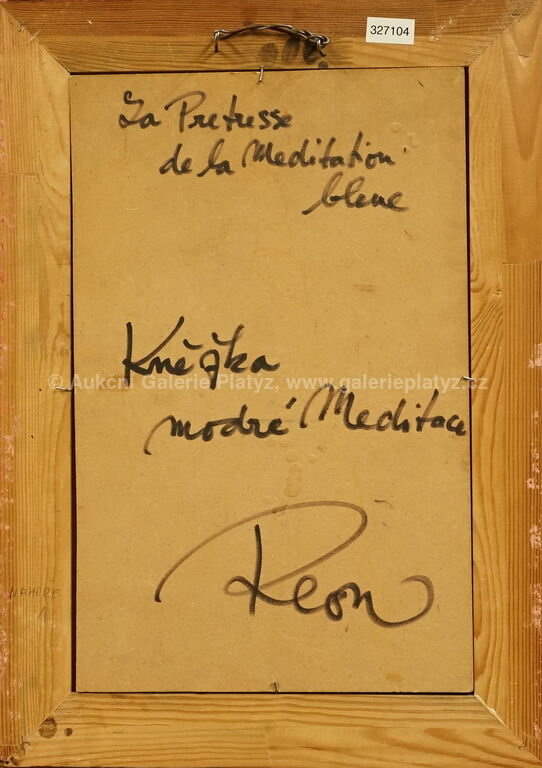 327104
La Pretresse
de la Meditation
bleue
Kněžka
© Aukční Galerie Platýz, www.galerieplatyz.cz
modré Meditace
Reon
NAHOŘE